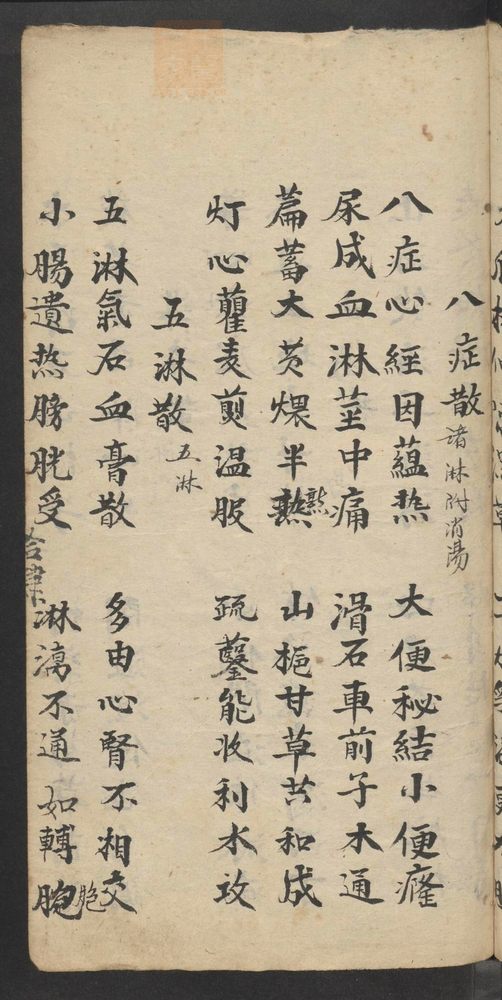 八症散 諸淋附消湯
八症心經因蘊热 大便秘結小便癃
尿成血淋莖中痛 滑石車前子木通
萹蓄大黄煨半熟 山梔甘草共和成
灯心藋麦煎温服 疏鑿能收利水攻
五淋散 五淋
五淋氣石血膏散 多由心腎不相交
小腸遺热膀胱受 淋漓不通如轉胞